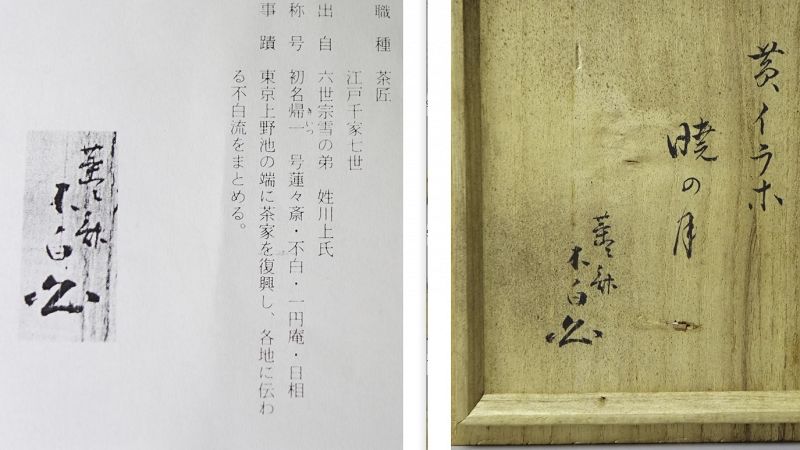 職種 茶匠
江戸千家七世
出自 六世宗雪の弟 姓川上氏
称号 初名帰一 号蓮々斎・不白・一円庵・日相
きいつ
事蹟 東京上野池の端に茶家を復興し、各地に伝わ
る不白流をまとめる。
蓮々斎
不白
黄イラホ
暁の月
蓮々斎
不白